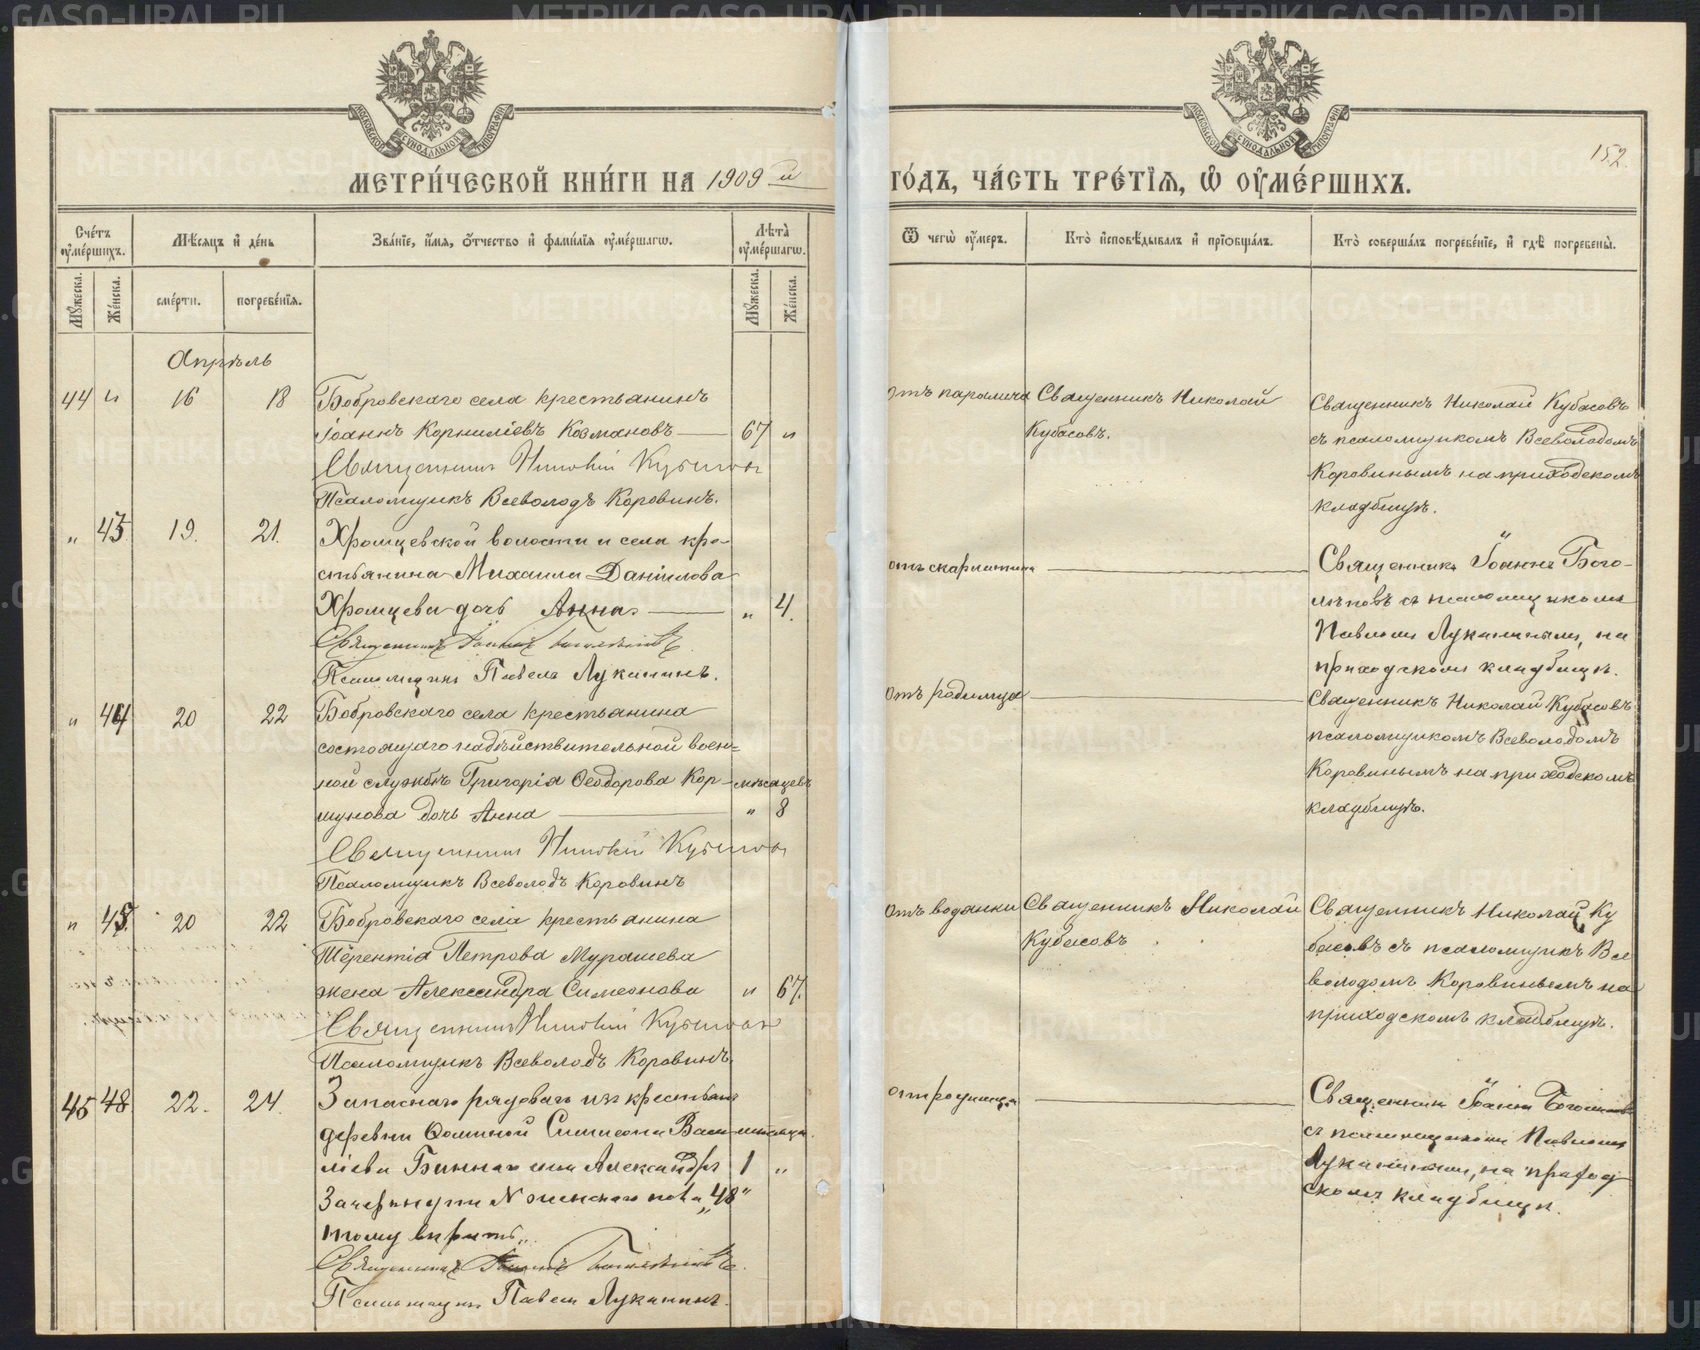 МЕТРИ́ЧЕСКОЙ КНИ́ГИ НА 1909 й
ГО́ДЪ, ЧА́СТЬ ТРЕ́ТІѦ, Ѡ҆ ОУ҆МЕ́РШИХЪ.
152.
Сче́тъ оу҆ме́ршихъ.
Мѣ́сяцъ и҆ де́нь
Зва́нїе, и҆́мѧ, ѻ҆́тчество и҆ фами́лїѧ оу҆ме́ршагѡ.
Лѣта̀ оу҆ме́ршагѡ.
Ѿ чегѡ̀ оу҆́меръ.
Кто̀ и҆сповѣ́дывалъ и҆ прїѻбща́лъ.
Кто̀ соверша́лъ погребе́нїе, и҆ гдѣ̀ погребены̀.
Мꙋ́жеска.
Же́нска.
сме́рти.
погребе́нїѧ.
Мꙋ́жеска.
Же́нска.
Апрѣль
44 " 16 18 Бобровскаго села крестьянинъ
Іоаннъ Корниліевъ Козмановъ 67 "
Священникъ Николай Кубасовъ
Псаломщикъ Всеволодъ Коровинъ.
отъ паралича
Священникъ Николай
Кубасовъ.
Священникъ Николай Кубасовъ
съ псаломщикомъ Всеволодомъ
Коровинымъ на приходскомъ
кладбищѣ.
" 43 19. 21. Хромцевской волости и села кре-
стьянина Михаила Даніилова
Хромцева дочь Анна. " 4.
Священникъ Іоаннъ Боголѣповъ
Псаломщикъ Павелъ Луканинъ.
отъ скарлатины
Священникъ Іоаннъ Бого-
лѣповъ съ псаломщикомъ
Павломъ Луканинымъ, на
приходскомъ кладбищѣ.
" 44 20 22 Бобровскаго села крестьянина
состоящаго на дѣйствительной воен-
ной службѣ Григорія Ѳеодорова Кор- мѣсяцевъ
шунова дочь Анна " 8
Священникъ Николай Кубасовъ
Псаломщикъ Всеволодъ Коровинъ
отъ родимца
Священникъ Николай Кубасовъ
псаломщикомъ Всеволодомъ
Коровинымъ на приходскомъ
кладбищѣ.
" 45. 20 22 Бобровскаго села крестьянина
Терентія Петрова Мурашева
жена Александра Симеонова " 67.
Священникъ Николай Кубасовъ
Псаломщикъ Всеволодъ Коровинъ
отъ водянки
Священникъ Николай
Кубасовъ
Священникъ Николай Ку
басовъ съ псаломщикъ Все
володомъ Коровинымъ на
приходскомъ кладбищѣ.
45 48 22. 24. Запаснаго рядоваго изъ крестьянъ
деревни Ѳоминой Симеона Васи- мѣсяца.
ліева сынъ Александръ 1 "
Зачеркнутому № женскаго пола „48"
тому вѣрить„.
Священникъ Іоаннъ Боголѣповъ.
Псаломщикъ Павелъ Луканинъ.
отъ родимца
Священникъ Іоаннъ Боголѣповъ
съ псаломщикомъ Павломъ
Луканинымъ, на приход
скомъ кладбищѣ.
METRIKI.GASO-URAL.RU